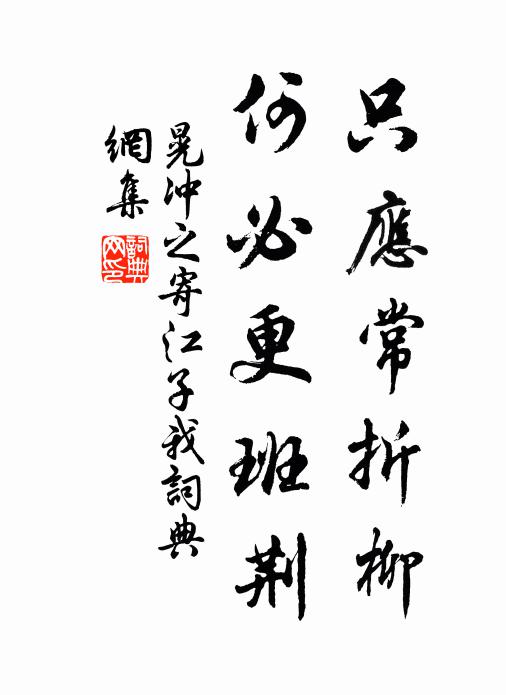 只應常折柳
何必更班荆
晁冲之寄江子我詞典
網集
詞典
网印